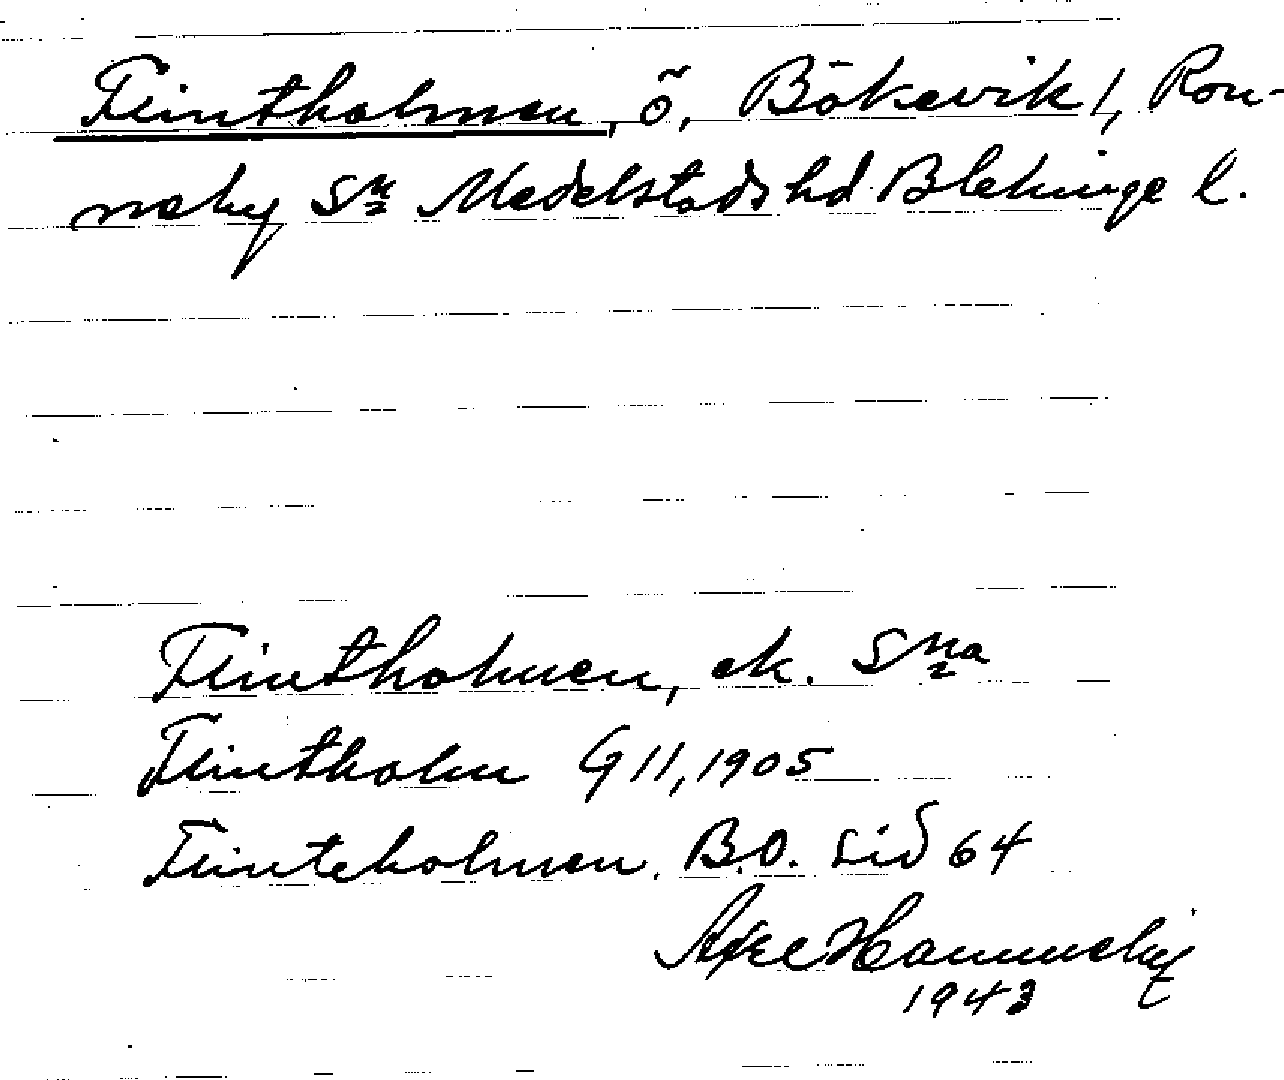 Flintholmen, ö, Bökevik 1, Ron-
neby Sn Medelstads hd Blekinge l.
Flintholmen, ek. Sna
Flintholm G 11, 1905
Flinteholmen. B.O. Sid 64
Axel Hammeby
1943